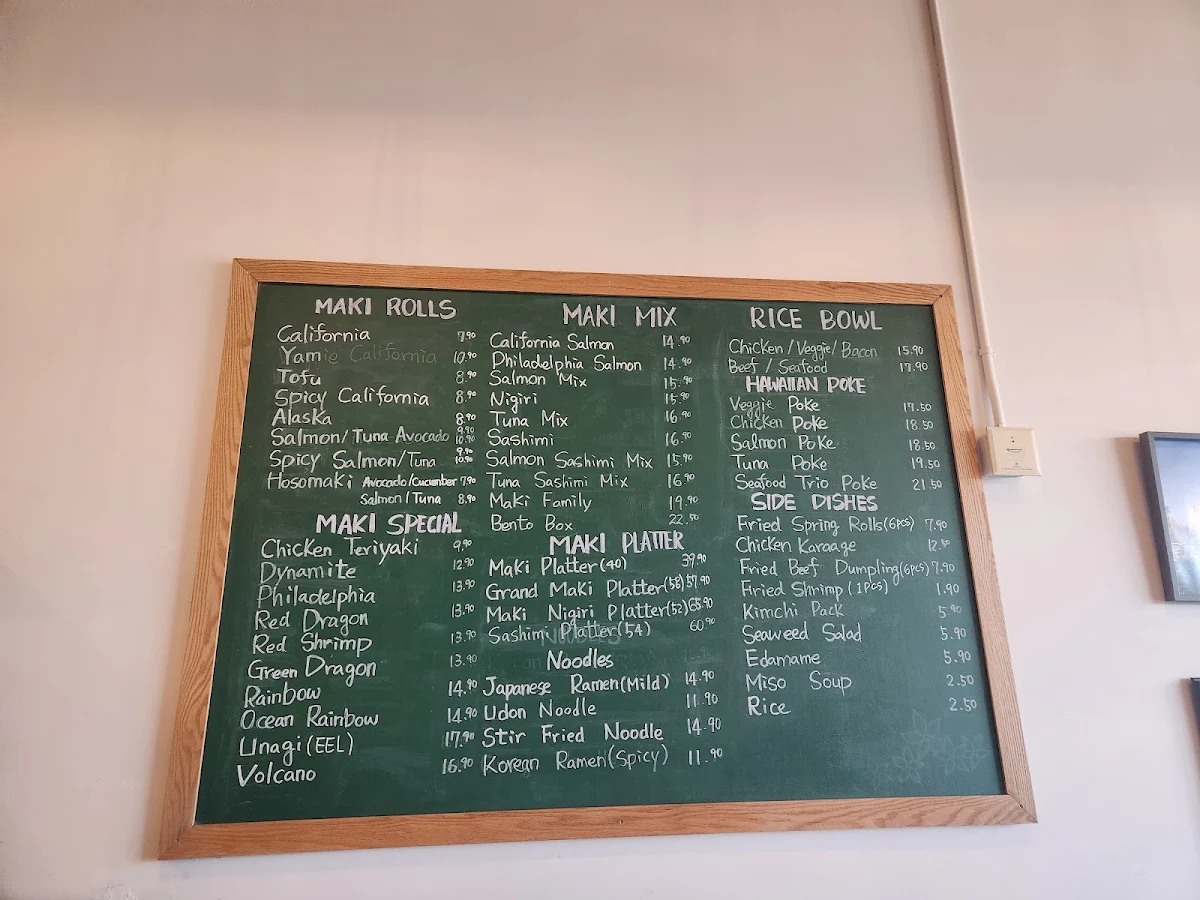 MAKI ROLLS
California 7.90
Yamie California 10.90
Tofu 8.90
Spicy California 8.90
Alaska 8.90
Salmon/Tuna Avocado 9.90 10.90
Spicy Salmon/Tuna 9.90 10.90
Hosomaki Avocado/Cucumber 7.90
Salmon/Tuna 8.90
MAKI SPECIAL
Chicken Teriyaki 9.90
Dynamite 12.90
Philadelphia 13.90
Red Dragon 13.90
Red Shrimp 13.90
Green Dragon 13.90
Rainbow 14.90
Ocean Rainbow 14.90
Unagi (EEL) 17.90
Volcano 16.90
MAKI MIX
California Salmon 14.90
Philadelphia Salmon 14.90
Salmon Mix 15.90
Nigiri 15.90
Tuna Mix 16.90
Sashimi 16.90
Salmon Sashimi Mix 15.90
Tuna Sashimi Mix 16.90
Maki Family 19.90
Bento Box 22.50
MAKI PLATTER
Maki Platter (40) 39.90
Grand Maki Platter (58) 57.90
Maki Nigiri Platter (52) 65.90
Sashimi Platter (54) 60.90
Noodles
Japanese Ramen (Mild) 14.90
Udon Noodle 11.90
Stir Fried Noodle 14.90
Korean Ramen (Spicy) 11.90
RICE BOWL
Chicken / Veggie / Bacon 15.90
Beef / Seafood 17.90
HAWAIIAN POKE
Veggie Poke 17.50
Chicken Poke 18.50
Salmon Poke 18.50
Tuna Poke 19.50
Seafood Trio Poke 21.50
SIDE DISHES
Fried Spring Rolls (6pcs) 7.90
Chicken Karaage 12.50
Fried Beef Dumpling (6pcs) 7.90
Fried Shrimp (1Pcs) 1.90
Kimchi Pack 5.90
Seaweed Salad 5.90
Edamame 5.90
Miso Soup 2.50
Rice 2.50